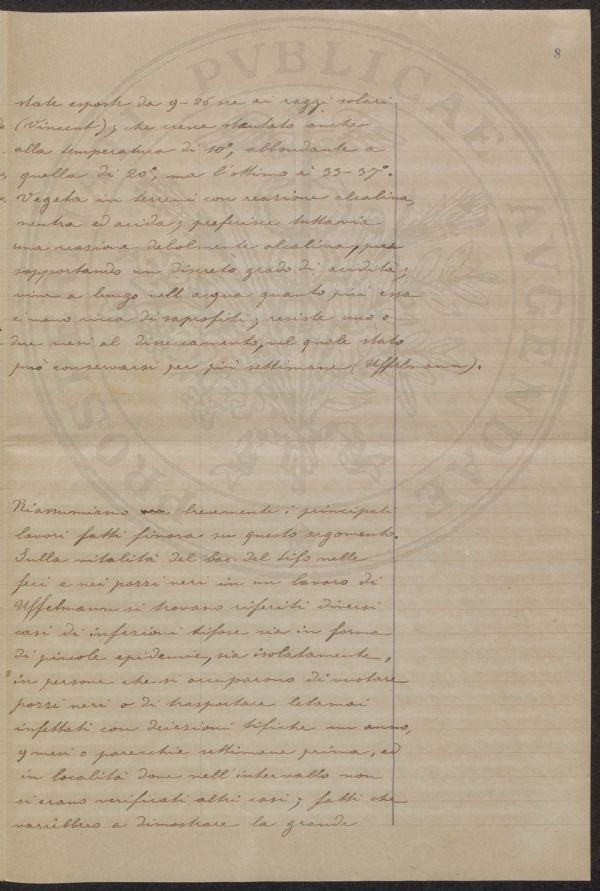 8
state esposte da 9-26 ore ai raggi solari
(Vincent); che cresce stentato anche
alla temperatura di 10°, abbondante a
quella di 20°, ma l'ottimo è 35-37°.
Vegeta in terreni con reazione alcalina,
neutra ed acida; preferisce tuttavia
una reazione debolmente alcalina, pure
sopportando un discreto grado di acidità;
vive a lungo nell'acqua quanto più essa
è meno ricca di saprofiti; resiste uno o
due mesi al disseccamento, nel quale stato
può conservarsi per più settimane (Uffelmann).
Riassumiamo brevemente i principali
lavori fatti finora su questo argomento.
Sulla vitalità del bac. del tifo nelle
feci e nei pozzi neri in un lavoro di
Uffelmann si trovano riferiti diversi
casi di infezioni tifose sia in forma
di piccole epidemie, sia isolatamente,
in persone che si occuparono di vuotare
pozzi neri o di trasportare letamai
infettati con deiezioni tifiche un anno,
9 mesi o parecchie settimane prima, ed
in località dove nell'intervallo non
si erano verificati altri casi; fatti che
varrebbero a dimostrare la grande
PVBLICAE AVGENDAE PROS